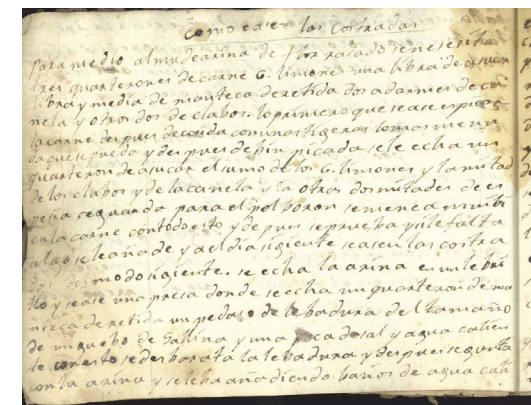 como cacer las Costradas
para medio almudearina de flor rasado senesesita
tres quarterones de carne 6. limones una libra de asucar
libra y media de manteca deretida dos adarmes de ca
nela y otros dos de clabos. lo primero que sease es picar
la carne despues decosida comunas tigeras lomas menu
da que se pueda y despues de bien picada se le echa un
quarteron de asucar el sumo de los 6. limones y la mitad
de los clabos y de la canela y la otras dos mitades de es
pesia seguarda para el polboron semenea mui bi
en la carne con todo esto y despues se prueba y si le falta
algo seleañade y al dia sigiente seasen las costra
das del modo sigiente. se echa la arina en un lebri
llo y sease una presa donde se echa un quarteron de ma
nteca deretida un pedaso de lebadura del tamaño
de un guebo de Gallina y una poca desal y agua calien
te con esto sedesborata la lebadura y despues se gunta
con la arina y seleba añadiendo baños de agua cali